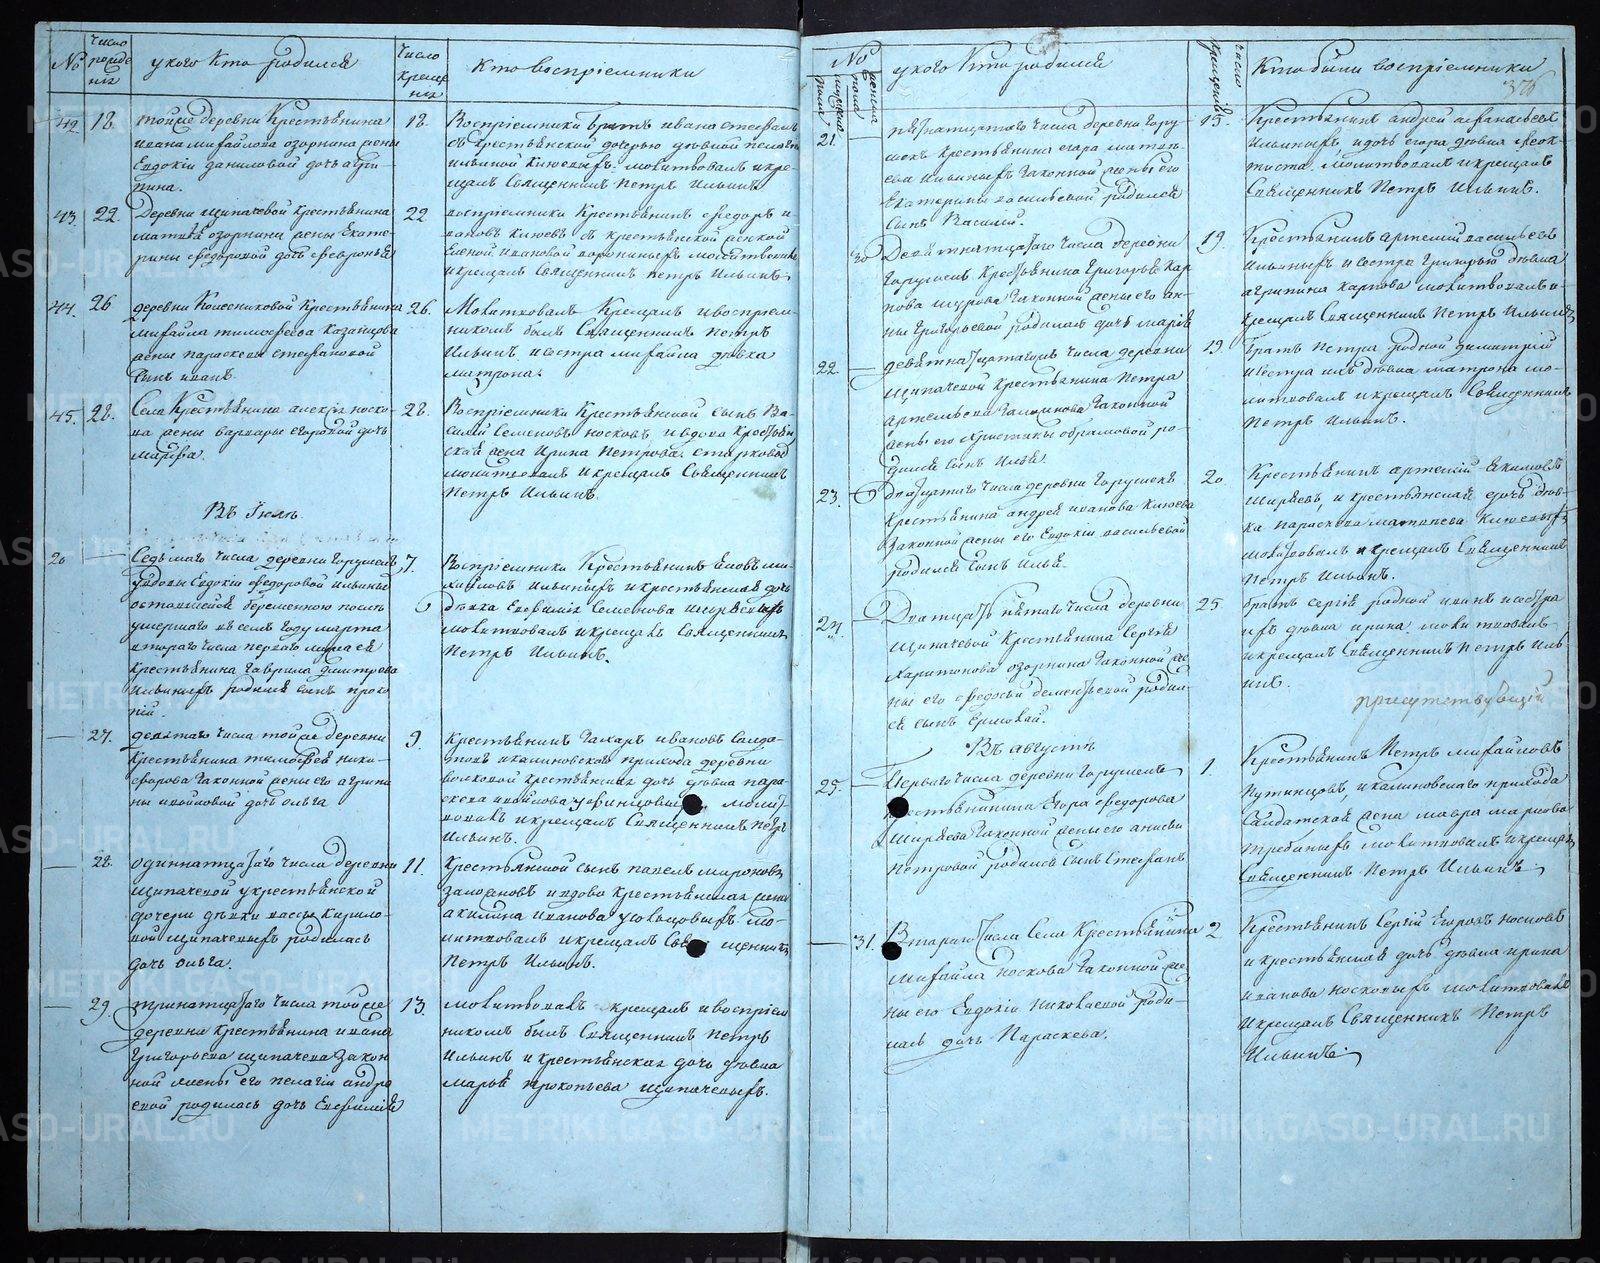 No
число рожде нія
у кого кто родился
число креще нія
кто воспріемники
42. 18. тойже деревни крестьянина
ивана михайлова озорнина жены
Евдокіи даниловой дочь агри-
пина.
18. Воспріемники братъ иванъ стефановъ
съ крестьянской дочерью дѣвкой пелагеи
ильиной клюевыхъ молитвовалъ и кре-
щалъ Священникъ Петръ Ильинъ
43. 22. Деревни щипачевой крестьянина
матвѣя озорнина жены Екате-
рины федоровой дочь февронья
22 воспріемники крестьянинъ федоръ и-
вановъ клюевъ съ крестьянской женкой
Еленой ивановой ворониныхъ молитвовалъ
и крещалъ Священникъ петръ Ильинъ
44. 26 деревни Колесниковой Крестьянина
михайла тимофеева казанцова
жены параскевы стефановой
сынъ иванъ.
26. Молитвовалъ Крещалъ и воспріем-
никомъ былъ Священникъ Петръ
Ильинъ и сестра михайла дѣвка
матрона.
45. 28. Села Крестьянина алексія носко-
ва жены варвары егоровой дочь
марфа.
28. Воспріемники Крестьянской сынъ Ва-
силій Семеновъ носковъ, и вдова Крестьян
ская жена Ирина Петрова старковы
молитвовалъ и крещалъ Священникъ
Петръ Ильинъ.
Въ Іюлѣ
20 — Седьмаго числа деревни горушекъ,
у вдовы Евдокіи федоровой ильиныхъ
оставшейся беременною послѣ
умершаго въ семъ году марта
втораго числа перваго мужа ея
крестьянина гаврила дмитрева
ильиныхъ родился сынъ проко
пій.
7. Воспріемники Крестьянинъ яковъ ми-
хайловъ Ильиныхъ и крестьянская дочь
дѣвка Евфимія Семенова ширяевыхъ
молитвовалъ и крещалъ Священникъ
Петръ Ильинъ.
— 27. девятаго числа той же деревни
крестьянина тимофея ники-
форова законной жены его агрипи
ны ивойловой дочь ольга
9. крестьянинъ Захаръ ивановъ Солда-
товъ и калиновскаго прихода деревни
волковой крестьянская дочь дѣвка пара-
скева
вовалъ и крещалъ Священникъ Петръ
Ильинъ.
— 28. одиннатцатаго числа деревни
щипачевой у крестьянской
дочери дѣвки вассы кирило-
вой щипачевыхъ родилась
дочь ольга.
11. Крестьянской сынъ павелъ мироновъ
и вдова крестьянская жена
акилина иванова мо-
литвовалъ и крещалъ Свя щенникъ
Петръ Ильинъ.
— 29. тринатцатаго числа той же
деревни крестьянина ивана
григорьева щипачева закон
ной жены его пелагіи андре
евой родилась дочь Евфимія
13. молитвовалъ крещалъ и воспріем
никомъ былъ Священникъ Петръ
Ильинъ и крестьянская дочь дѣвка
марья прокопьева щипачевыхъ.
No
мужеска пола
женска пола
у кого кто родился
число крещенія
Кто были воспріемники
376
21. пятнатцатаго числа деревни гору-
шекъ крестьянина егора матве-
ева ильиныхъ законной жены его
Екатерины васильевой родился
сынъ Василій.
15. Крестьянинъ андрей афанасьевъ
Ильиныхъ, и дочь егора дѣвка феок-
тиста. молитвовалъ и крещалъ
Священникъ Петръ Ильинъ.
30 Девятнатцатаго числа деревни
горушекъ крестьянина григорья кар
пова шурова законной жены его ан-
ны григорьевой родилась дочь марія
19. Крестьянинъ артемій васильевъ
Ильиныхъ и сестра григорья дѣвка
агрипина карпова молитвовалъ и
крещалъ Священникъ Петръ Ильинъ
22. — девятнатцатагожъ числа деревни
щипачевой крестьянина Петра
артемьева законной
жены его христины абрамовой ро-
дился сынъ Илья.
19. братъ петра родной димитрій
и сестра ихъ дѣвка матрона мо-
литвовалъ и крещалъ Священникъ
Петръ Ильинъ.
23. — двадцатаго числа деревни горушекъ
крестьянина андрея иванова клюева
законной жены его Евдокіи васильевой
родился сынъ Илья.
20 Крестьянинъ артемій
ширяевъ, и крестьянская дочь дѣв-
ка параскева матвеева клюевыхъ
молитвовалъ и крещалъ Священникъ
Петръ Ильинъ.
24. Дватцать пятаго числа деревни
щипачевой крестьянина Сергія
харитонова озорнина законной же
ны его федосьи дементьевой родил-
ся сынъ Ермолай.
25 братъ сергія родной иванъ и сестра
ихъ дѣвка ирина. молитвовалъ
и крещалъ Священникъ Петръ Иль-
инъ.
присутствующій
Въ августѣ
25. — Перваго числа деревни горушекъ
крестьянина Егора федорова
ширяева законной жены его анисьи
петровой родился сынъ Стефанъ
1. Крестьянинъ Петръ михайловъ
Путинцовъ, и калиновскаго прихода
Салдатская жена мавра маркова
молитвовалъ и крещалъ
Священникъ Петръ Ильинъ.
— 31. Втораго числа Села Крестьянина
михайла носкова законной же
ны его Евдокіи николаевой роди-
лась дочь Параскева.
2 Крестьянинъ Сергій Егоровъ носковъ
и крестьянская дочь дѣвка ирина
иванова носковыхъ молитвовалъ
и крещалъ Священникъ Петръ
Ильинъ.
METRIKI.GASO-URAL.RU